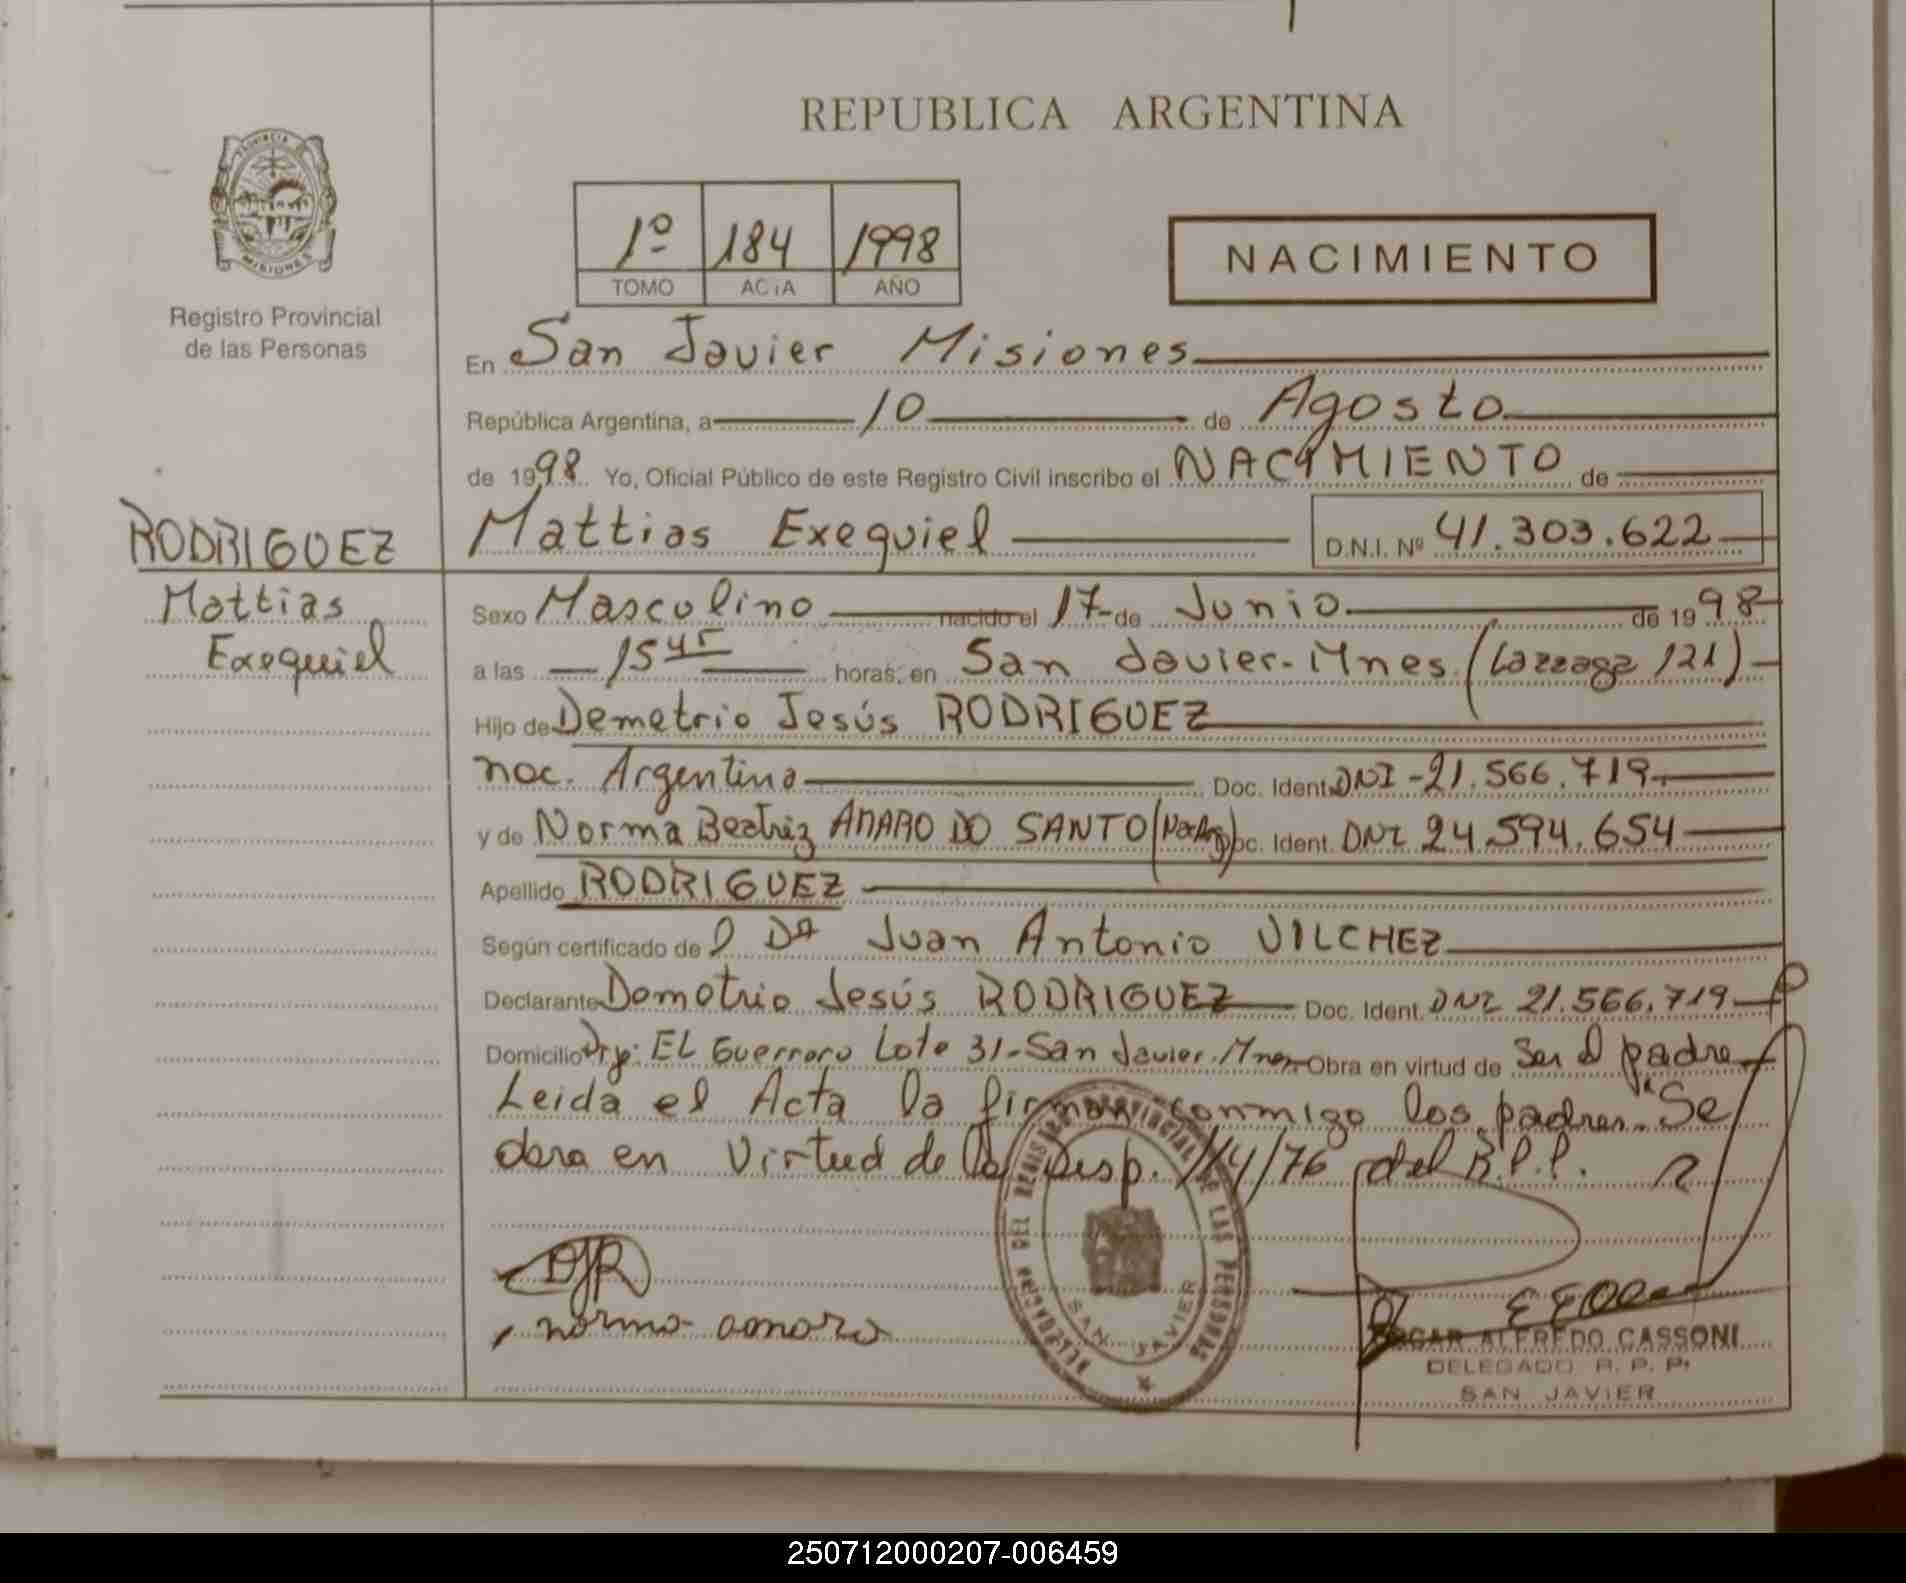 REPUBLICA ARGENTINA
PROVINCIA DE
MISIONES
Registro Provincial
de las Personas
1º 184 1998
TOMO ACTA AÑO
NACIMIENTO
En San Javier Misiones
República Argentina, a 10 de Agosto
de 1998. Yo, Oficial Público de este Registro Civil inscribo el NACIMIENTO de
RODRIGUEZ
Mattias
Exequiel
Mattias Exequiel D.N.I. Nº 41.303.622
Sexo Masculino nacido el 17 de Junio de 1998
a las 15 45 horas, en San Javier-Mnes (Lazzaga 121)
Hijo de Demetrio Jesús RODRIGUEZ
nac. Argentina Doc. Ident. DNI-21.566.719
y de Norma Beatriz AMARO DO SANTO (Nac Arg) Doc. Ident. DNI 24.594.654
Apellido RODRIGUEZ
Según certificado de Juan Antonio VILCHEZ
Declarante Demetrio Jesús RODRIGUEZ Doc. Ident. DNI 21.566.719
Domicilio EL Guerrero Lote 31-San Javier. Mnes Obra en virtud de Ser el padre
Leida el Acta la firman conmigo los padres. Se
en Virtud de la Disp. 114/76 del R.P.P.
DJR
norma amaro
DELEGACION DEL REGISTRO PROVINCIAL DE LAS PERSONAS
SAN JAVIER
OSCAR ALFREDO CASSONI
DELEGADO R. P. P.
SAN JAVIER
250712000207-006459